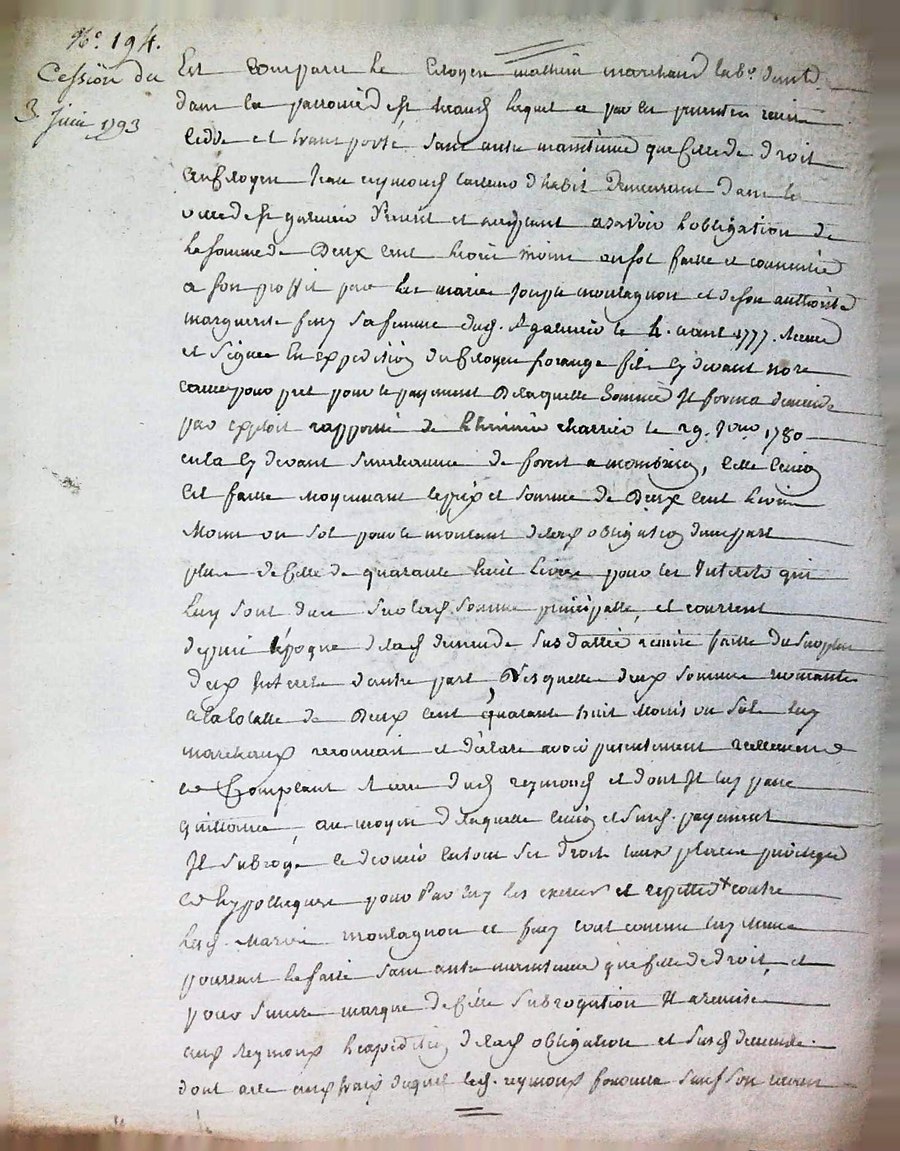 N.° 194.
Cession du
3 Juin 1793
Est comparu le Citoyen mathieu marchand lab.r demt
dans la parroisse de st lequel a par les presentes remis
cedde et transporté, sans autre maintenue que celle de droit
au Citoyen Jean reymond tailleur d'habit demeurant dans la
ville de st galmier present et acceptant asavoir l'obligation de
la somme de Deux cent livres moins un sol faitte et consentie
a son proffit par les mariés Joseph montagnon et de son authorité
marguerite fery sa femme dud. st galmier le 4. avril 1777. Receue
et signée en expedition du Citoyen forange fils cy devant no.re
cause pour pret pour le payement de laquelle somme Il forma demande
par exploit rapporté de charrier le 29. 1780
en la cy devant de forest a montbrison, cette cession
est faitte moyennant le prix et somme de Deux cent livres
Moins un sol pour le montant de lad obligation d'une part
plus de celle de quarante huit livres pour les Interets qui
luy sont dus sur lad somme principalle, et courrent
depuis l'époque de lad demande sus dattée remise faitte du surplus
des d Interets d'autre part, Desquelles deux sommes revenantes
a la totalle de Deux cent quarante huit livres Moins un Sol led
marchand reconnait et déclare avoir presentement reellement
en Comptant Receu dud reymond et dont Il luy passe
quittance, au moyen de laquelle cession et susd. payement
Il subroge le dernier en tous ses droits lieux places privileges
et hyppotheques pour par luy les exercer et repetter contre
lesd. Mariés montagnon et fery tout comme luy meme
pourrait le faire sans autre maintenue que celle de droit, et
pour Sincere marque de cette subrogation Il a remis
aud Reymond l'expedition de lad obligation et susd demande
dont acte aux frais duquel led. reymond sauf son recours